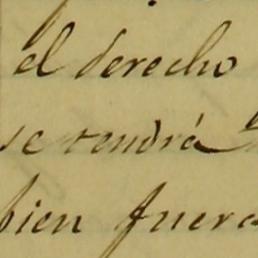 el derecho
se tendrá
bien fuera